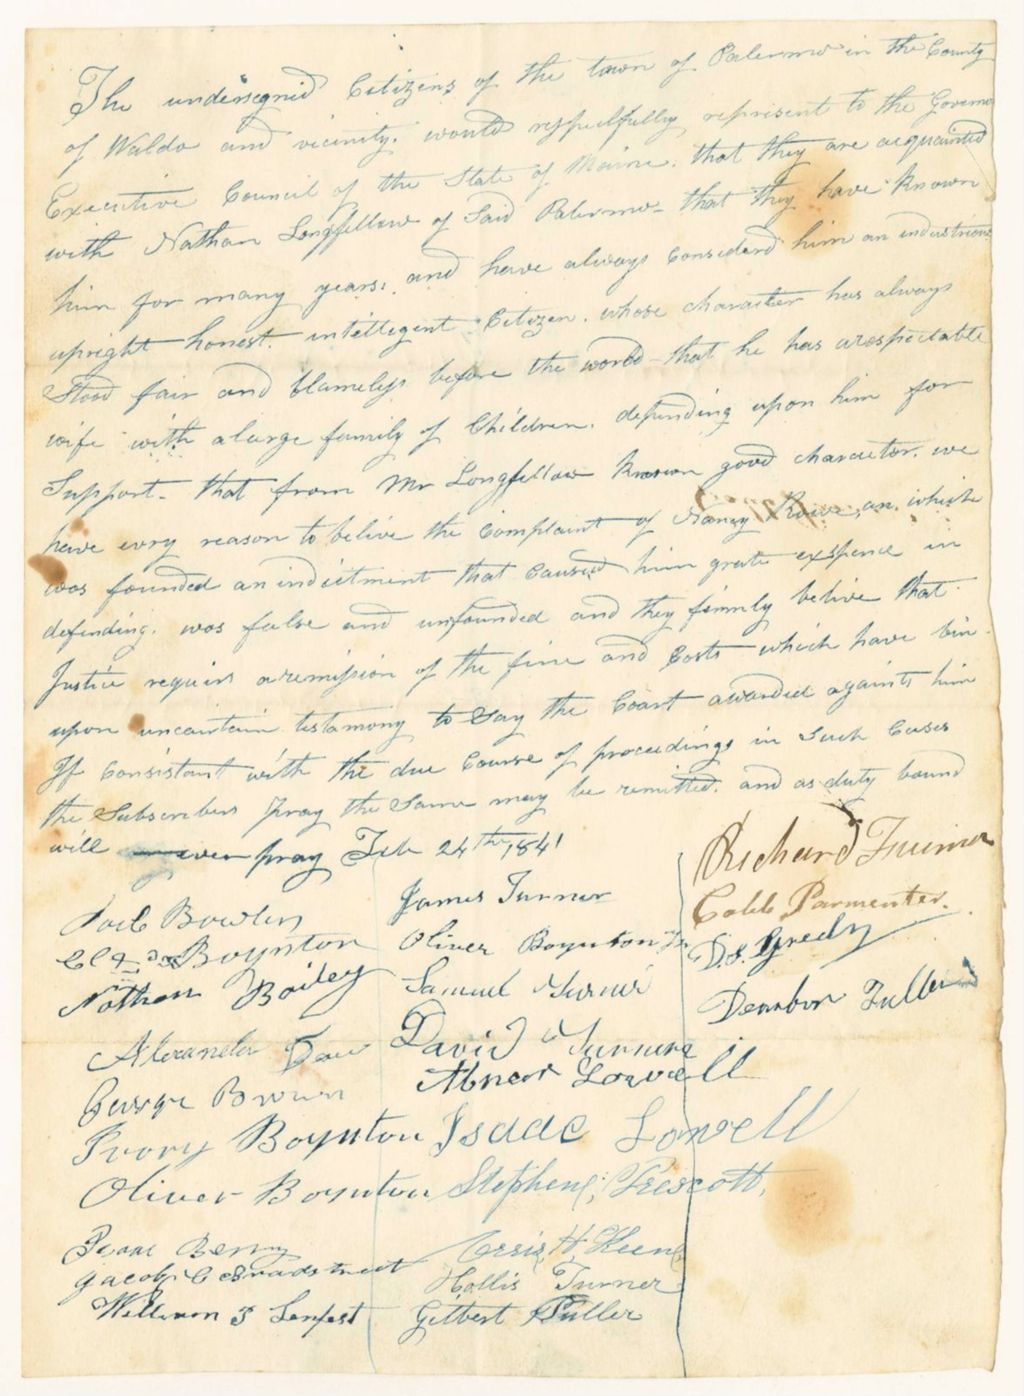 The undersigned Citizens of the town of Palermo in the County
of Waldo and vicinity. would respectfully represent to the Governor
Executive Council of the State of Maine. that they are acquainted
with Nathan Longfellow of Said Palermo - that they have known
him for many years. and have always Considerd him an industrious
upright honest. intellegent Citizen. whose character has always
Stood fair and blameless before the world - that he has a respectable
wife with a large family of Children. depending upon him for
Support. that from Mr Longfellow known good character. we
have evry reason to belive the Complaint of Nancy Rowe, on which
was founded an indictment that Caused him grate exspence in
defending. was false and unfounded and they firmly belive that
Justice requirs a remission of the fine and Costs which have bin
upon uncairtain testamony to Say the Coart awarded againts him
If Consistant with the due Course of proceedings in Such Cases
the Subscribers pray the Same may be remitted. and as duty bound
will ever pray Feb 24th 1841
Bowlen
Boynton
Nathan Bailey
Alexander Dow
George Brown
Ivory Boynton
Oliver Boynton
Isaac Berry
Jacob C Bradstreet
William S
James Turner
Oliver Boynton Jr
Samuel Turner
David Turner
Abner Lowell
Isaac Lowell
Stephen Prescott,
H. Keene
Hollis Turner
Gilbert Fuller
Richard Turner
Caleb Parmenter.
D.S.
Dearborn Fuller